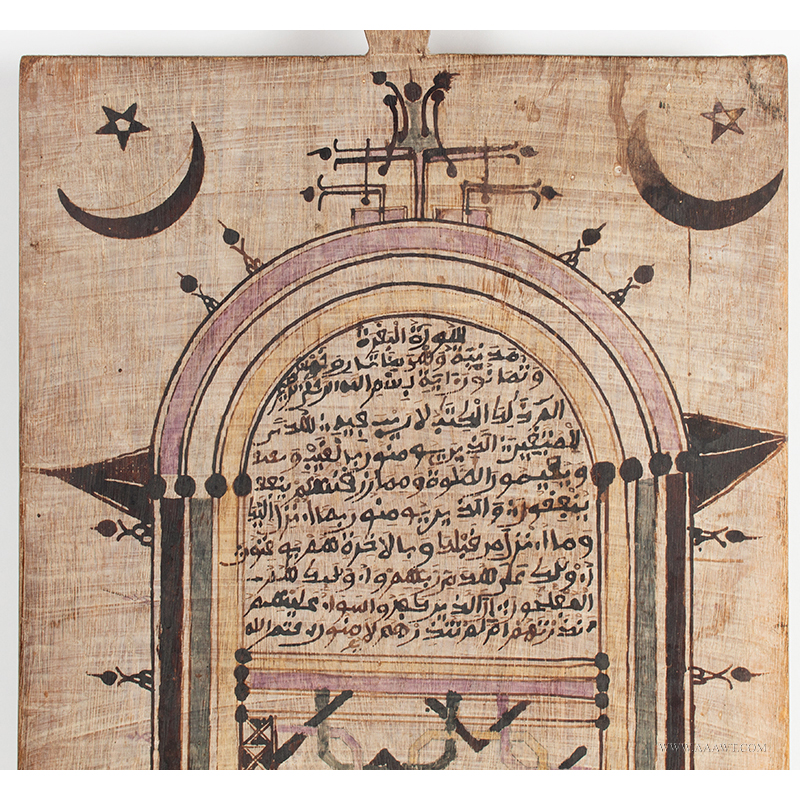 سورة البقرة
مدنية وهى مايتان وست
وثمانون اية بسم الله الرحمن الرحيم
الم ذلك الكتب لا ريب فيه هدى
للمتقين الذين يومنون بالغيب و
ويقيمون الصلوة ومما رزقنهم ينفـ
ينفقون والذين يومنون بما انزل اليك
وما انزل من قبلك وبالاخرة هم يوقنون
اولئك على هدى من ربهم واولئك هم
المفلحون ان الذين كفروا سواء عليهم
انذرتهم ام لم تنذرهم لا يومنون ختم الله
WWW.AAAWT.COM